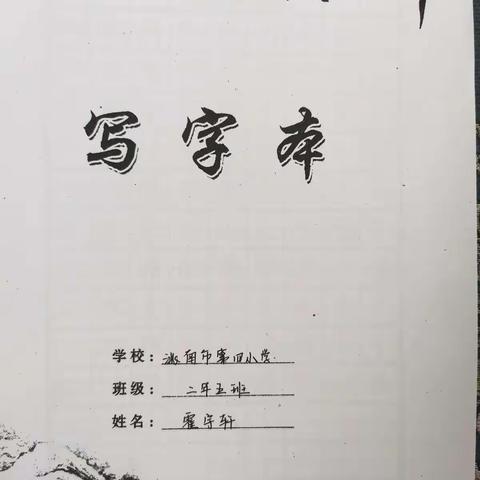 写字本
学校：滦南第四小学
班级：二年五班
姓名：霍宇轩